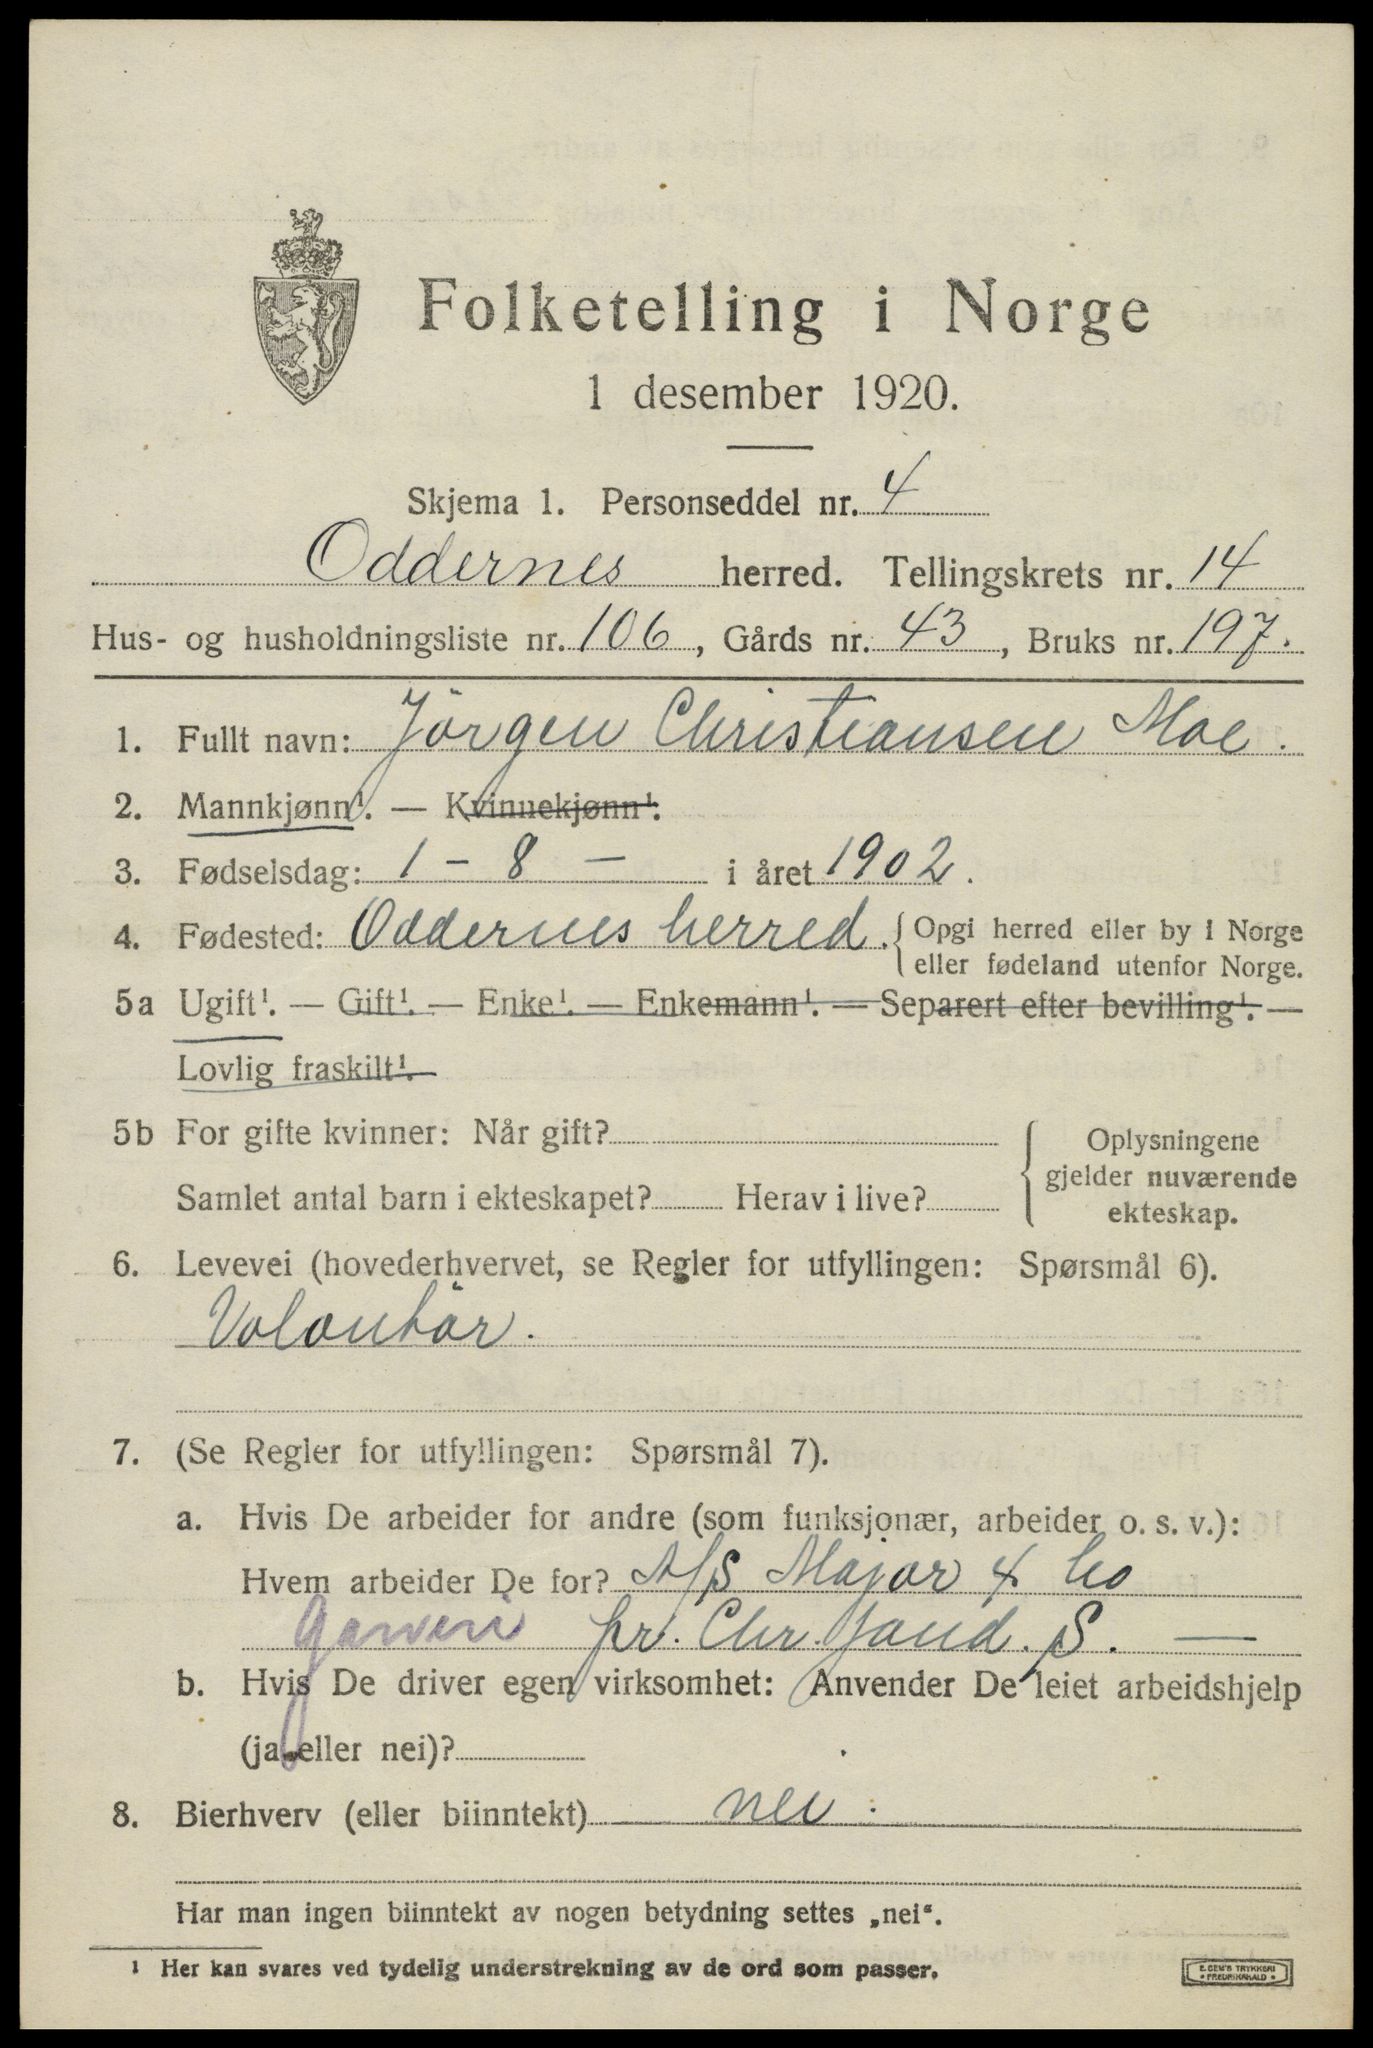 Folketelling i Norge
1 desember 1920.
Skjema 1. Personseddel nr. 4
Oddernes herred. Tellingskrets nr. 14
Hus- og husholdningsliste nr. 106, Gårds nr. 43, Bruks nr. 197.
1. Fullt navn: Jörgen Christiansen Moe.
2. Mannkjønn¹. — Kvinnekjønn¹.
3. Fødselsdag: 1 - 8 - i året 1902.
4. Fødested: Oddernes herred. { Opgi herred eller by i Norge
eller fødeland utenfor Norge.
5a Ugift¹. — Gift¹. — Enke¹. — Enkemann¹. — Separert efter bevilling¹. —
Lovlig fraskilt¹.
5b For gifte kvinner: Når gift?
Samlet antal barn i ekteskapet? Herav i live?
Oplysningene
gjelder nuværende
ekteskap.
6. Levevei (hovederhvervet, se Regler for utfyllingen: Spørsmål 6).
Volontär.
7. (Se Regler for utfyllingen: Spørsmål 7).
a. Hvis De arbeider for andre (som funksjonær, arbeider o. s. v.):
Hvem arbeider De for? A/S Major & Co
Garveri pr. Chr.sand. S. —
b. Hvis De driver egen virksomhet: Anvender De leiet arbeidshjelp
(ja eller nei)?
8. Bierhverv (eller biinntekt) nei.
Har man ingen biinntekt av nogen betydning settes „nei“.
¹ Her kan svares ved tydelig understrekning av de ord som passer.
E. SEM'S TRYKKERI
FREDRIKSHALD